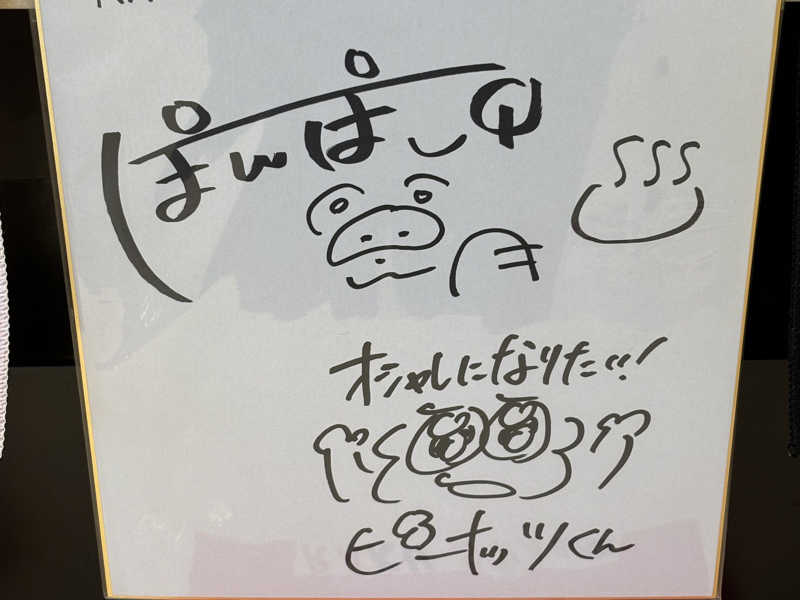 ぽんぽこ
オシャレになりたい!
ピーナッツくん